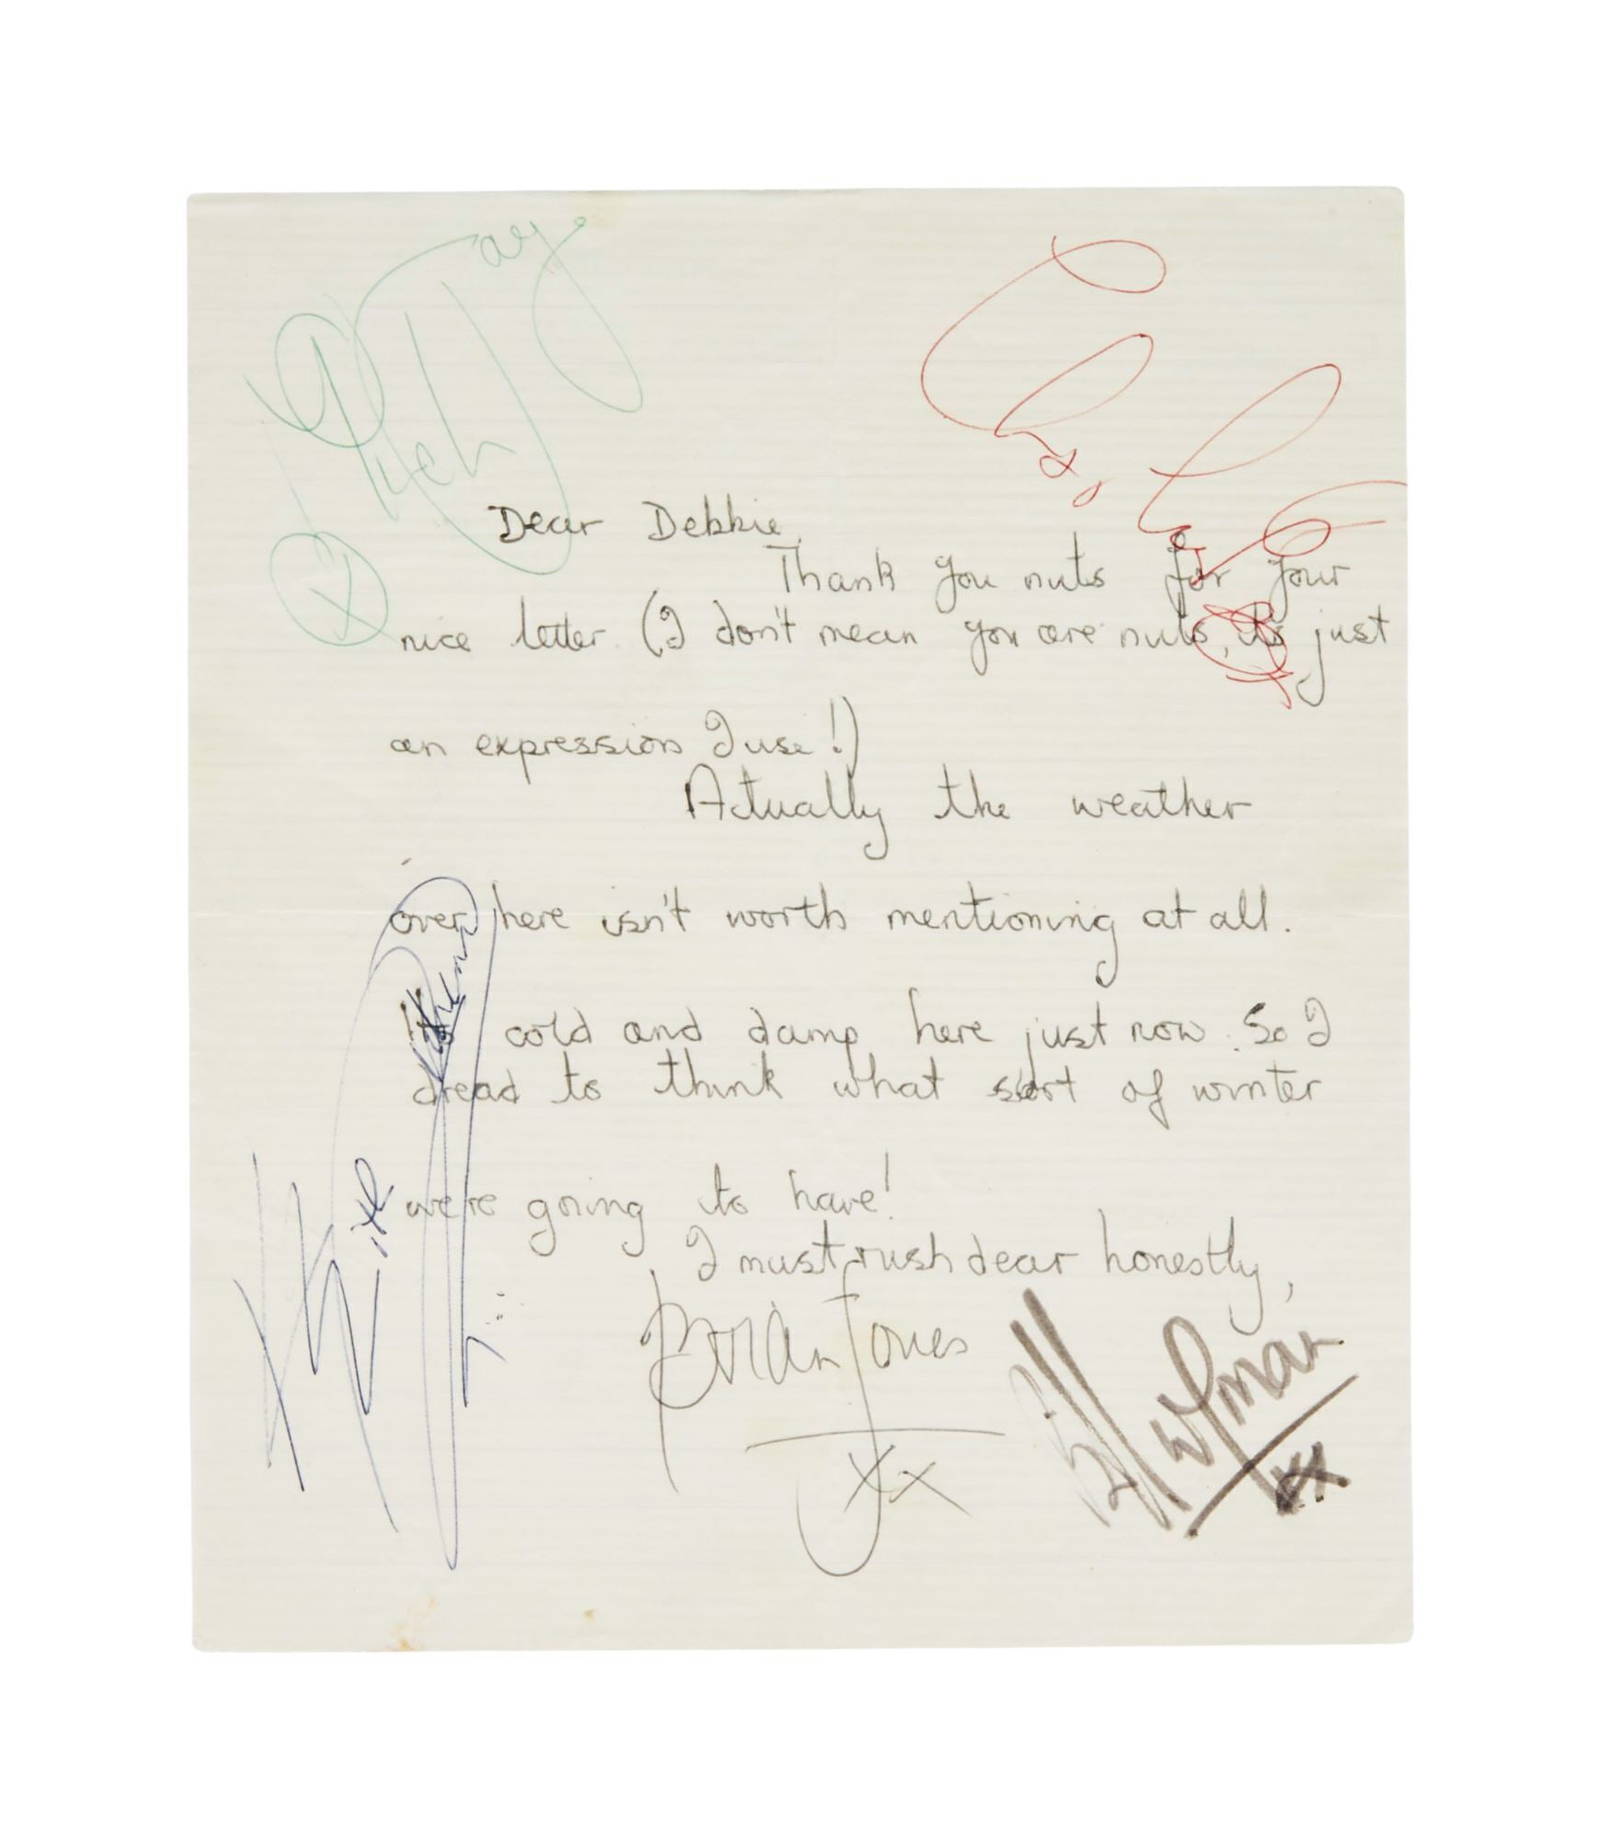 Mick Jagger
X
Dear Debbie,
Thank you nuts for your
nice letter. (I don't mean you are nuts, its just
an expression I use!)
Actually the weather
over here isn't worth mentioning at all.
cold and damp here just now. So I
dread to think what sort of winter
we're going to have!
I must rush dear honestly,
Brian Jones
XX
Bill Wyman
XX
Keith